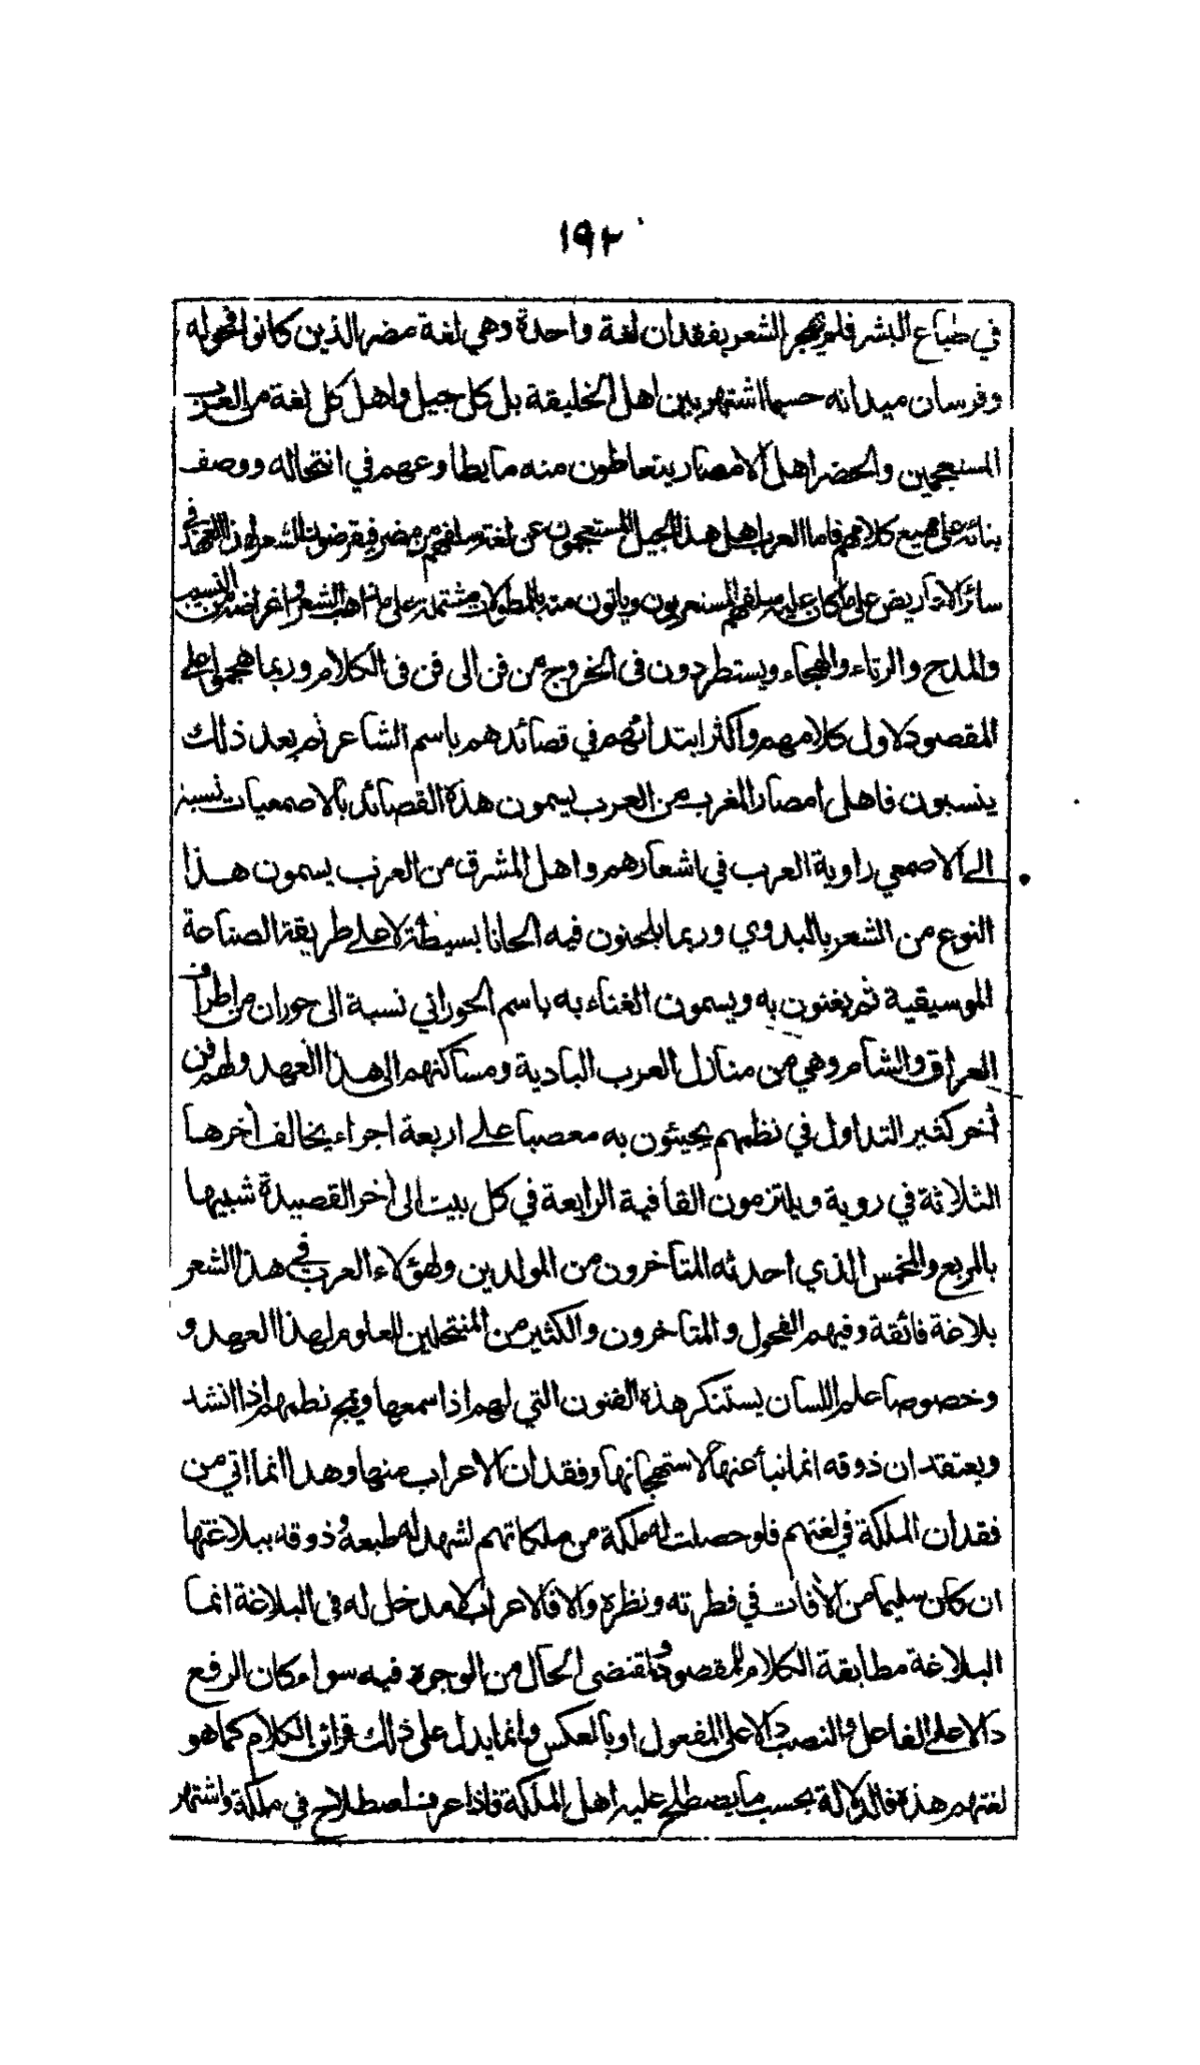 ١٩٢
في طباع البشر فلم يهجر الشعر بفقدان لغة واحدة وهي لغة مضر الذين كانوا فحوله
وفرسان ميدانه حسبما اشتهر بين اهل الخليقة بل كل جيل واهل كل لغة من العرب
المستعجمين والحضر اهل الامصار يتعاطون منه ما يطاوعهم في انتحاله ووصف
بنائه على مهيع كلامهم فاما العرب اهل هذا الجيل المستعجمون عن لغة سلفهم من مضر فيقرضون الشعر لهذا العهد في
سائر الاعاريض على ما كان عليه سلفهم المستعربون وياتون منه بالمطولات مشتملة على مذاهب الشعر واغراضه من النسيب
والمدح والرثاء والهجاء ويستطردون في الخروج من فن الى فن في الكلام وربما هجموا على
المقصود لاول كلامهم واكثر ابتدائهم في قصائدهم باسم الشاعر ثم بعد ذلك
ينسبون فاهل امصار المغرب من العرب يسمون هذه القصائد بالاصمعيات نسبة
الى الاصمعي راوية العرب في اشعارهم واهل المشرق من العرب يسمون هذا
النوع من الشعر بالبدوي وربما يلحنون فيه الحانا بسيطة لا على طريقة الصناعة
الموسيقية ثم يغنون به ويسمون الغناء به باسم الحوراني نسبة الى حوران من اطراف
العراق والشام وهي من منازل العرب البادية ومساكنهم الى هذا العهد ولهم فن
أخر كثير التداول في نظمهم يجيئون به معصبا على اربعة اجزاء يخالف أخرها
الثلاثة في روية ويلتزمون القافية الرابعة في كل بيت الى أخر القصيدة شبيها
بالمربع والمخمس الذي احدثه المتأخرون من المولدين ولهؤلاء العرب في هذا الشعر
بلاغة فائقة وفيهم الفحول والمتاخرون والكثير من المنتحلين للعلوم لهذا العهد و
وخصوصا علم اللسان يستنكر هذه الفنون التي لهم اذا سمعها ويمج نظمهم اذا انشد
ويعتقد ان ذوقه انما نبأ عنها لاستهجانها وفقدان الاعراب منها وهدا انما اتي من
فقدان الملكة في لغتهم فلو حصلت له ملكة من ملكاتهم لشهد له طبعه وذوقه ببلاغتها
ان كان سليما من الأفات في فطرته ونظره والا فالاعراب لا مدخل له في البلاغة انما
البلاغة مطابقة الكلام للمقصود ولمقتضى الحال من الوجوه فيه سواء كان الرفع
دالا على الفاعل والنصب دالا على المفعول او بالعكس وانما يدل على ذلك قرائن الكلام كما هو
لغتهم هذه فالدلالة بحسب ما يصطلح عليه اهل الملكة فاذا عرف اصطلاح في ملكة واشتهر